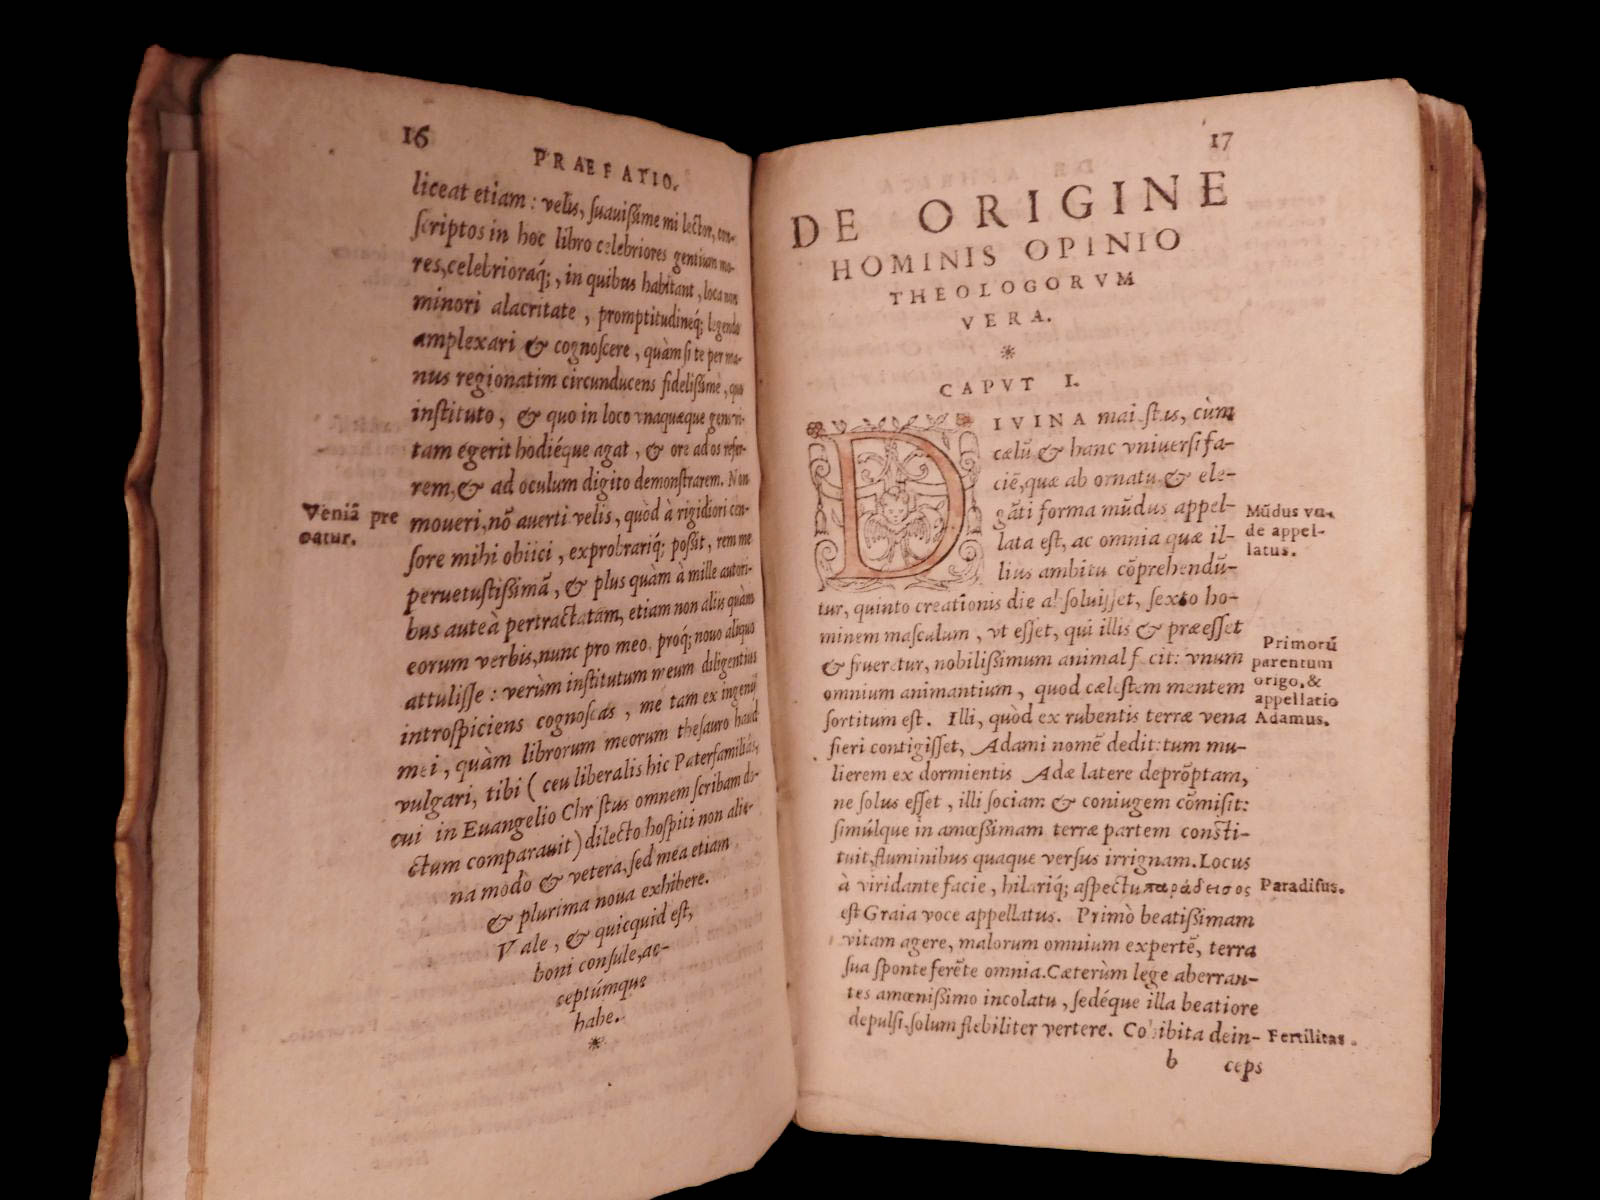 16
PRAEFATIO.
liceat etiam : velis, suauissime mi lector, con-
scriptos in hoc libro celebriores gentium mo-
res, celebrioraq́; , in quibus habitant , loca non
minori alacritate , promptitudineq́; legendo
amplexari & cognoscere , quàm si te per ma-
nus regionatim circunducens fidelissime ,
instituto , & quo in loco vnaquæque gens vi-
tam egerit hodiéque agat , & ore ad os refer-
rem, & ad oculum digito demonstrarem. Non
moueri, nõ auerti velis , quòd à rigidiori cen-
sore mihi obiici , exprobrariq́; possit , rem me
peruetustissimã , & plus quàm à mille autori-
bus auteà pertractatam, etiam non aliis quàm
eorum verbis, nunc pro meo, proq́; nouo aliquo
attulisse : verùm institutum meum diligentius
introspiciens cognoscas , me tam ex ingenij
mei , quàm librorum meorum thesauro haud
vulgari, tibi ( ceu liberalis hic Paterfamiliâs,
cui in Euangelio Christus omnem scribam do-
ctum comparauit ) dilecto hospiti non alie-
na modò & vetera, sed mea etiam
& plurima noua exhibere.
Vale , & quicquid est,
boni consule, ac-
ceptúmque
habe.
*
Veniã pre
catur.
17
DE ORIGINE
HOMINIS OPINIO
THEOLOGORVM
VERA.
*
CAPVT I.
DIVINA maiestas, cùm
cælũ & hanc vniuersi fa-
ciẽ, quæ ab ornatu & ele-
gãti forma mũdus appel-
lata est, ac omnia quæ il-
lius ambitu cõprehendũ-
tur, quinto creationis die absoluisset, sexto ho-
minem masculum , vt esset, qui illis & præesset
& frueretur, nobilissimum animal fecit: vnum
omnium animantium , quod cælestem mentem
sortitum est. Illi, quòd ex rubentis terræ vena
fieri contigisset, Adami nomẽ dedit: tum mu-
lierem ex dormientis Adæ latere deprõptam,
ne solus esset , illi sociam & coniugem cõmisit:
simúlque in amœssimam terræ partem consti-
tuit, fluminibus quaque versus irriguam. Locus
à viridante facie , hilariq́; aspectu παράδεισος
est Graia voce appellatus. Primò beatissimam
vitam agere, malorum omnium expertẽ, terra
sua sponte ferẽte omnia. Cæterùm lege aberran-
tes amœnissimo incolatu , sedéque illa beatiore
depulsi, solum flebiliter vertere. Cohibita dein-
b ceps
Mũdus vn-
de appel-
latus.
Primorũ
parentum
origo, &
appellatio
Adamus.
Paradisus.
Fertilitas .